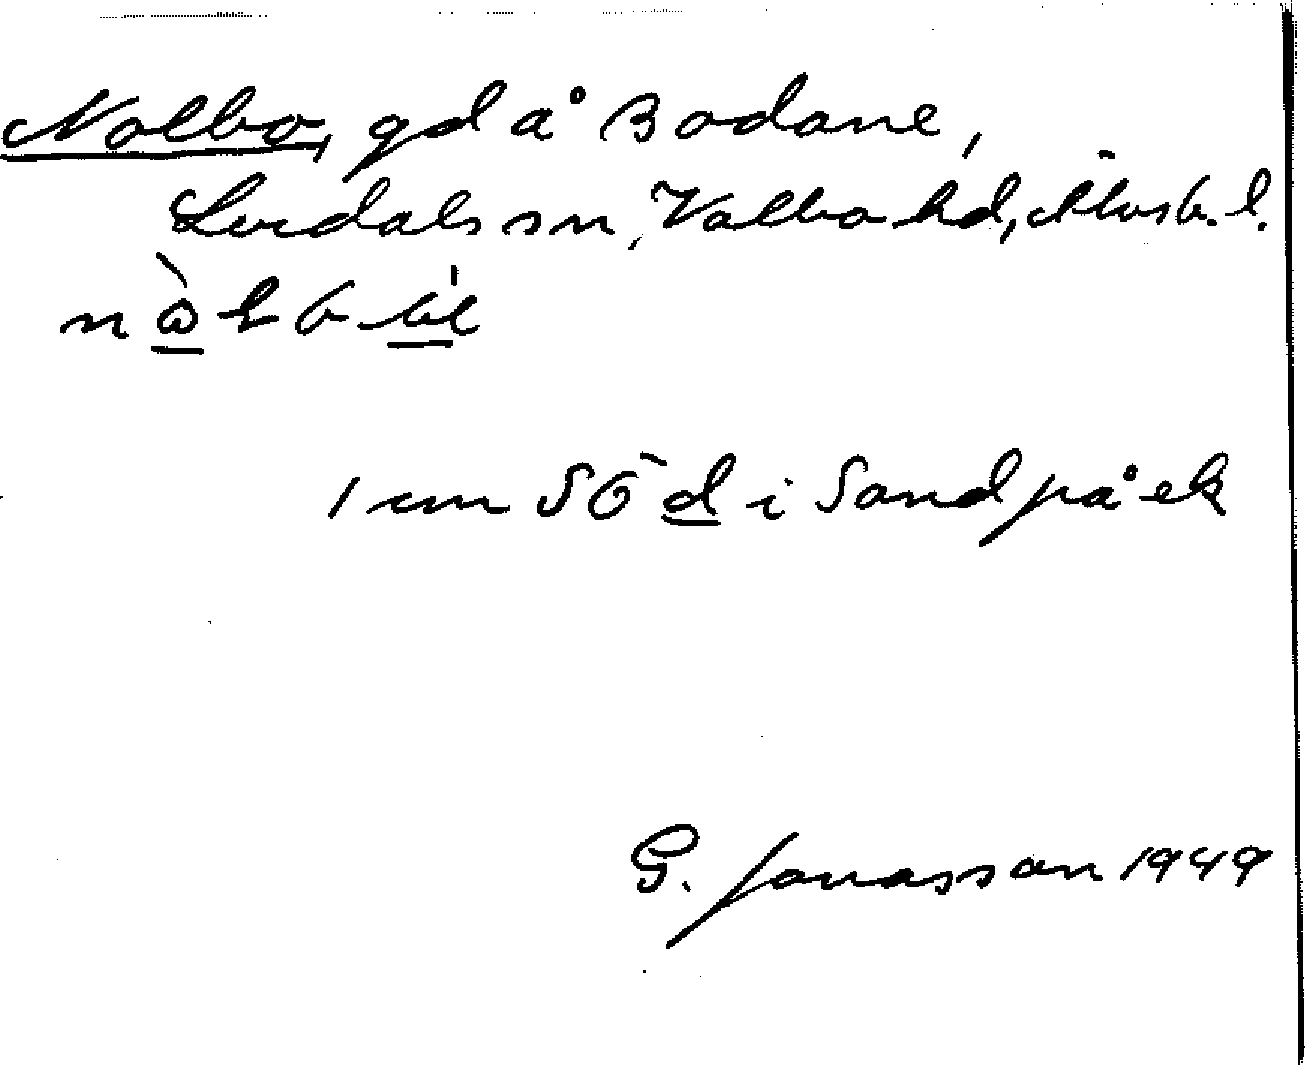 Nolbo, gd å Bodane,
Lerdals sn, Valbo hd, Älvsb. l.
1 cm SÖ d i Sand på ek
G. Jonasson 1949